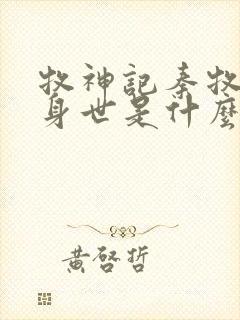 牧神記秦牧
身世是什麼
黃啓哲